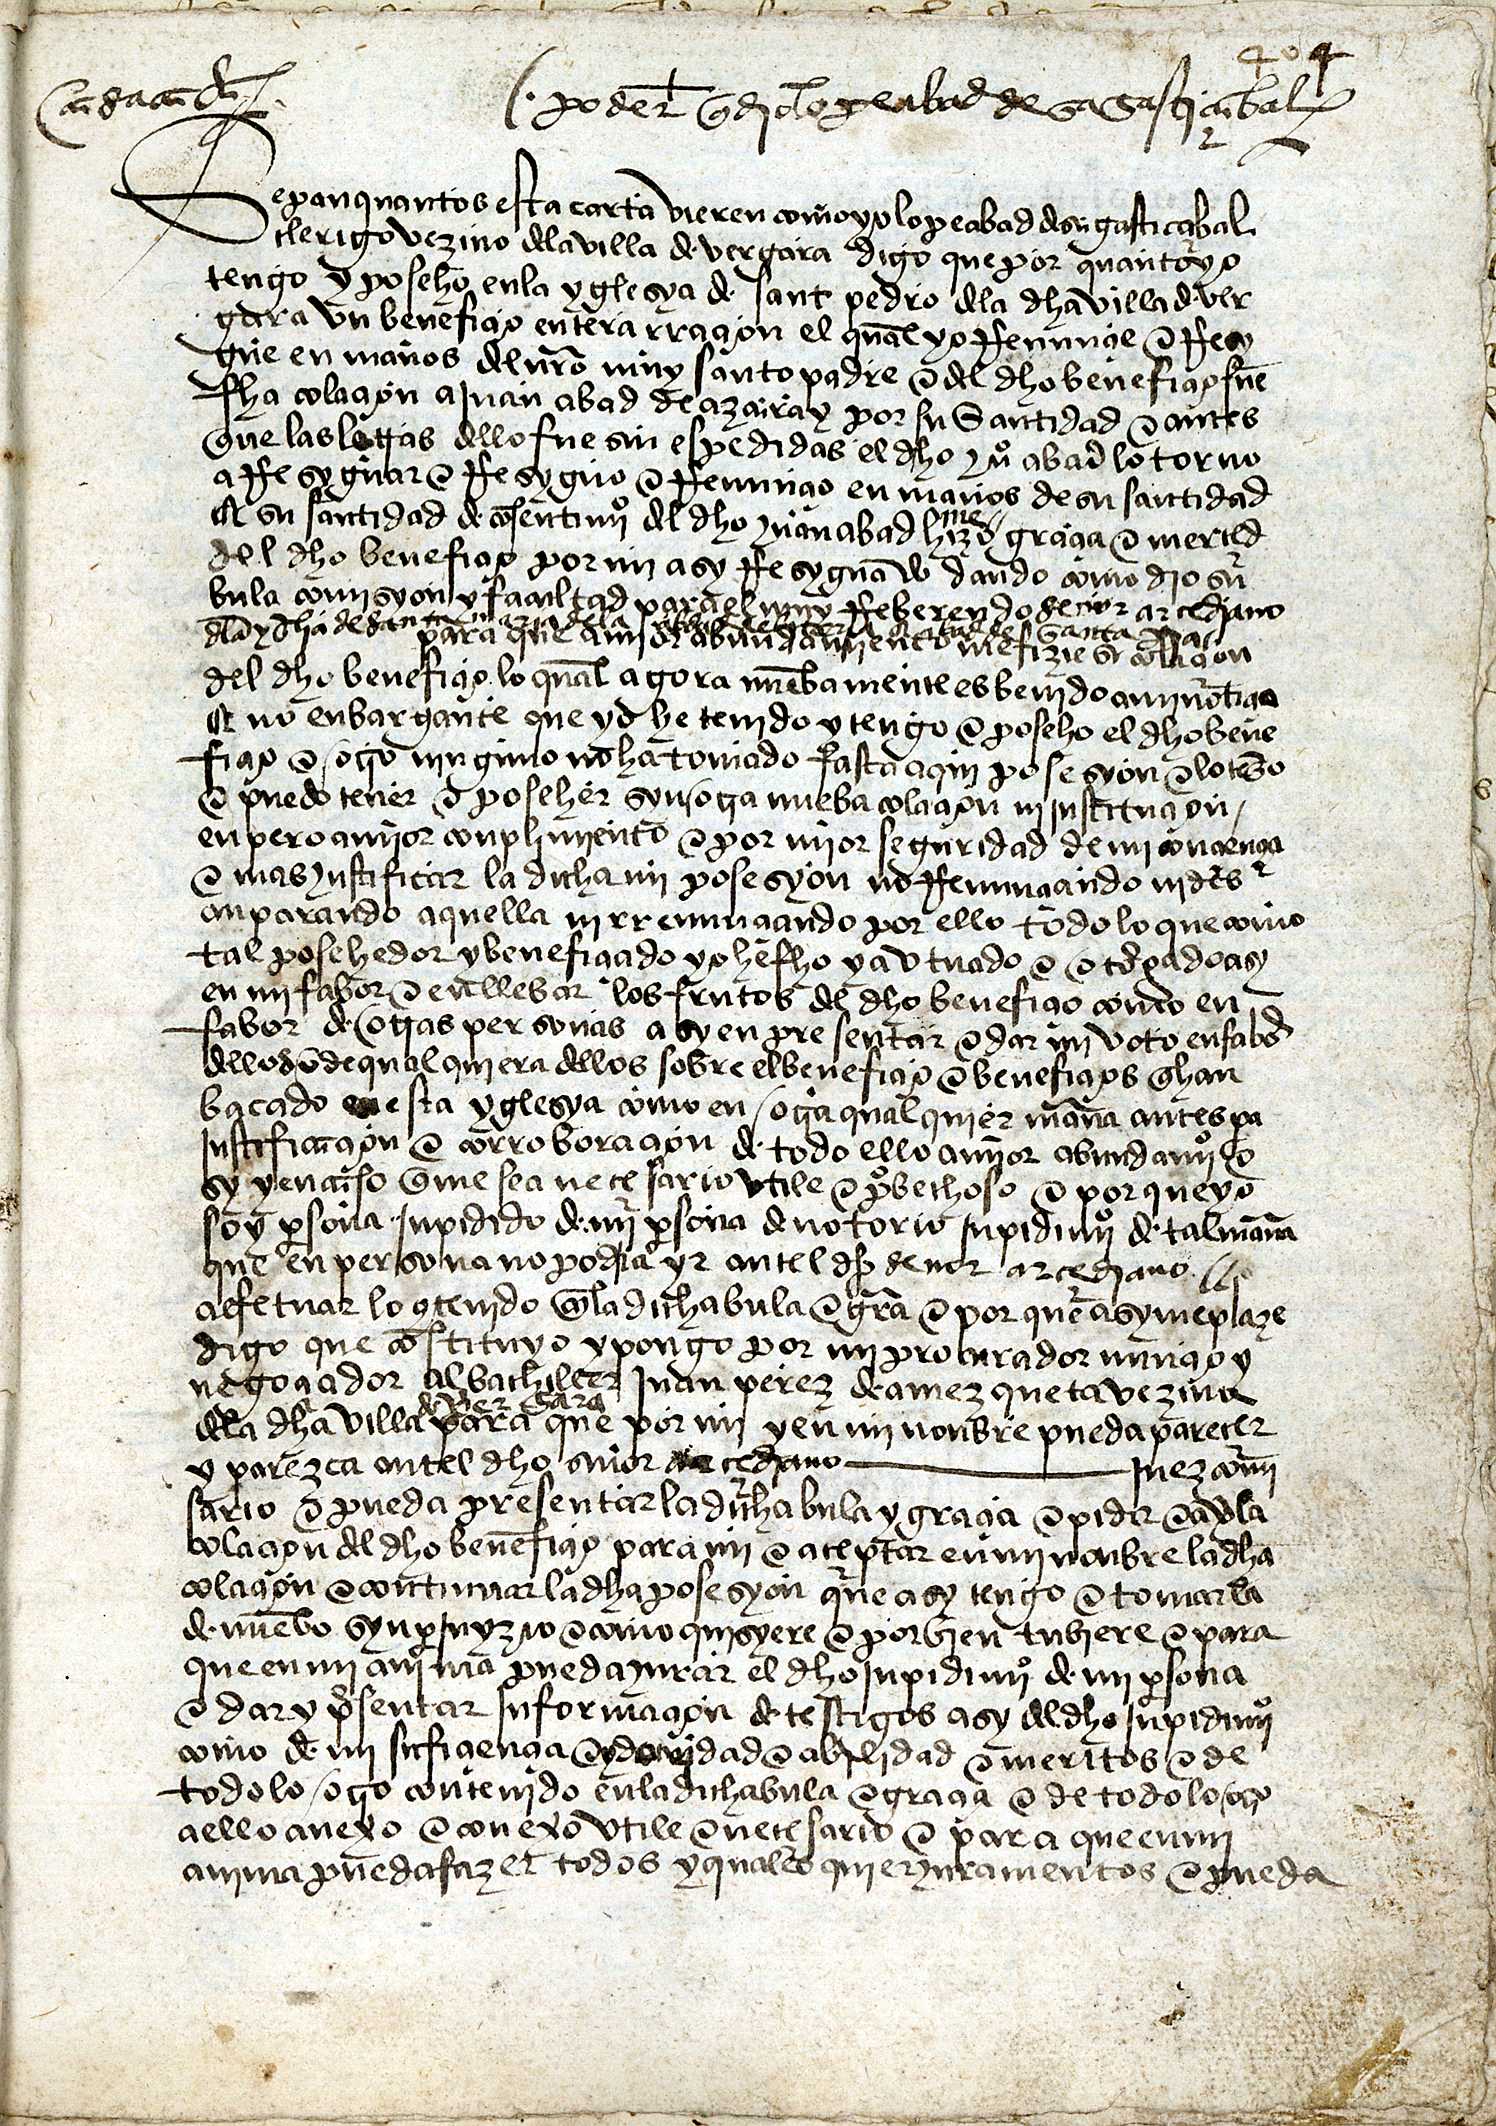 404
poder q dio lope abad de Gasticabal
Sepan quantos esta carta vieren como yo lope abad de sugasticabal
clerigo vezino dela villa de vergara digo que por quanto yo
tengo y poseho enla yglesya de sant pedro dela dha villa de ver
gara vn benefiçio entera rraçion el qual yo Renunçie e Resy
gne en manos del nro muy santo padre e del dho benefiçio fue
fha colaçion a Juan abad de azcaray por su Santidad e antes
que las letras dello fuesen espedidas el dho Juº abad lo torno
a Resygnar e Resygno e Renunçio en manos de su santidad
E su santidad de consentimiº del dho Juan abad me hizo graçia e merced
del dho benefiçio por mi asy Resygnado dando como dio su
bula comisyon y facultad para el muy Reberendo señor arcediano
para que a mijor abundamiento me fiziese colaçion
del dho benefiçio lo qual agora nuebamente es benido a mi notiçia
E no enbargante que yo he tenido y tengo e poseho el dho bene
fiçio e otro ninguno no ha tomado fasta aqui posesyon e lo tengo
e puedo tener e posehér syn otra nueba colaçion ni Instituçion
enpero a mijor conplimiento e por mijor seguridad de mi conçiençia
e mas Justificar la dicha mi posesyon no Renunçiando ni des
anparando aquella ni rrenunçiando por ello todo lo que como
tal posehedor y benefiçiado yo he fho y avtuado e otorgado asy
en mi fabor e en llebar los frutos del dho benefiçio como en
fabor de otras personas asy en presentar e dar mi voto en fabor
dellos o de qualquiera dellos sobre el benefiçio e benefiçios q han
bacado en esta yglesya como en otra qualquier mana antes pa
Justificaçion e corroboraçion de todo ello a mijor abundamiº e
sy y en caso que me sea necesario vtile e probechoso e por que yo
soy psona Inpidido de mi psona de notorio Inpidimiº de tal mana
que en persona no podria yr antel dho señor arcediano
a efetuar lo contenido enla dicha bula e gra e por que asy me plaze
digo que costituyo y pongo por mi procurador nunçio y
negoçiador al bachiller Juan perez de amezqueta vezino
dela dha villa de Vergara para que por mi y en mi nonbre pueda parecer
y parezca antel dho señor arcediano Juez comi
sario e pueda presentar la dicha bula y graçia e pidir e aver la
colaçion del dho benefiçio para mi e aceptar en mi nonbre la dha
colaçion e continuar la dha posesyon que asy tengo e tomar la
de nuebo syn pJuyzio e como quisyere e por bien tubiere e para
que en mi anima pueda Jurar el dho Inpidimiº de mi psona
e dar y presentar Informaçion de testigos asy del dho Inpidimiº
como de mi sufiçiençia e ydoneidad e abilidad e meritos e de
todo lo otro contenido enla dicha bula e graçia e de todo lo otro
a ello anexo e conexo vtile e necesario e para que en mi
anima pueda fazer todos y quales quier Juramentos e pueda